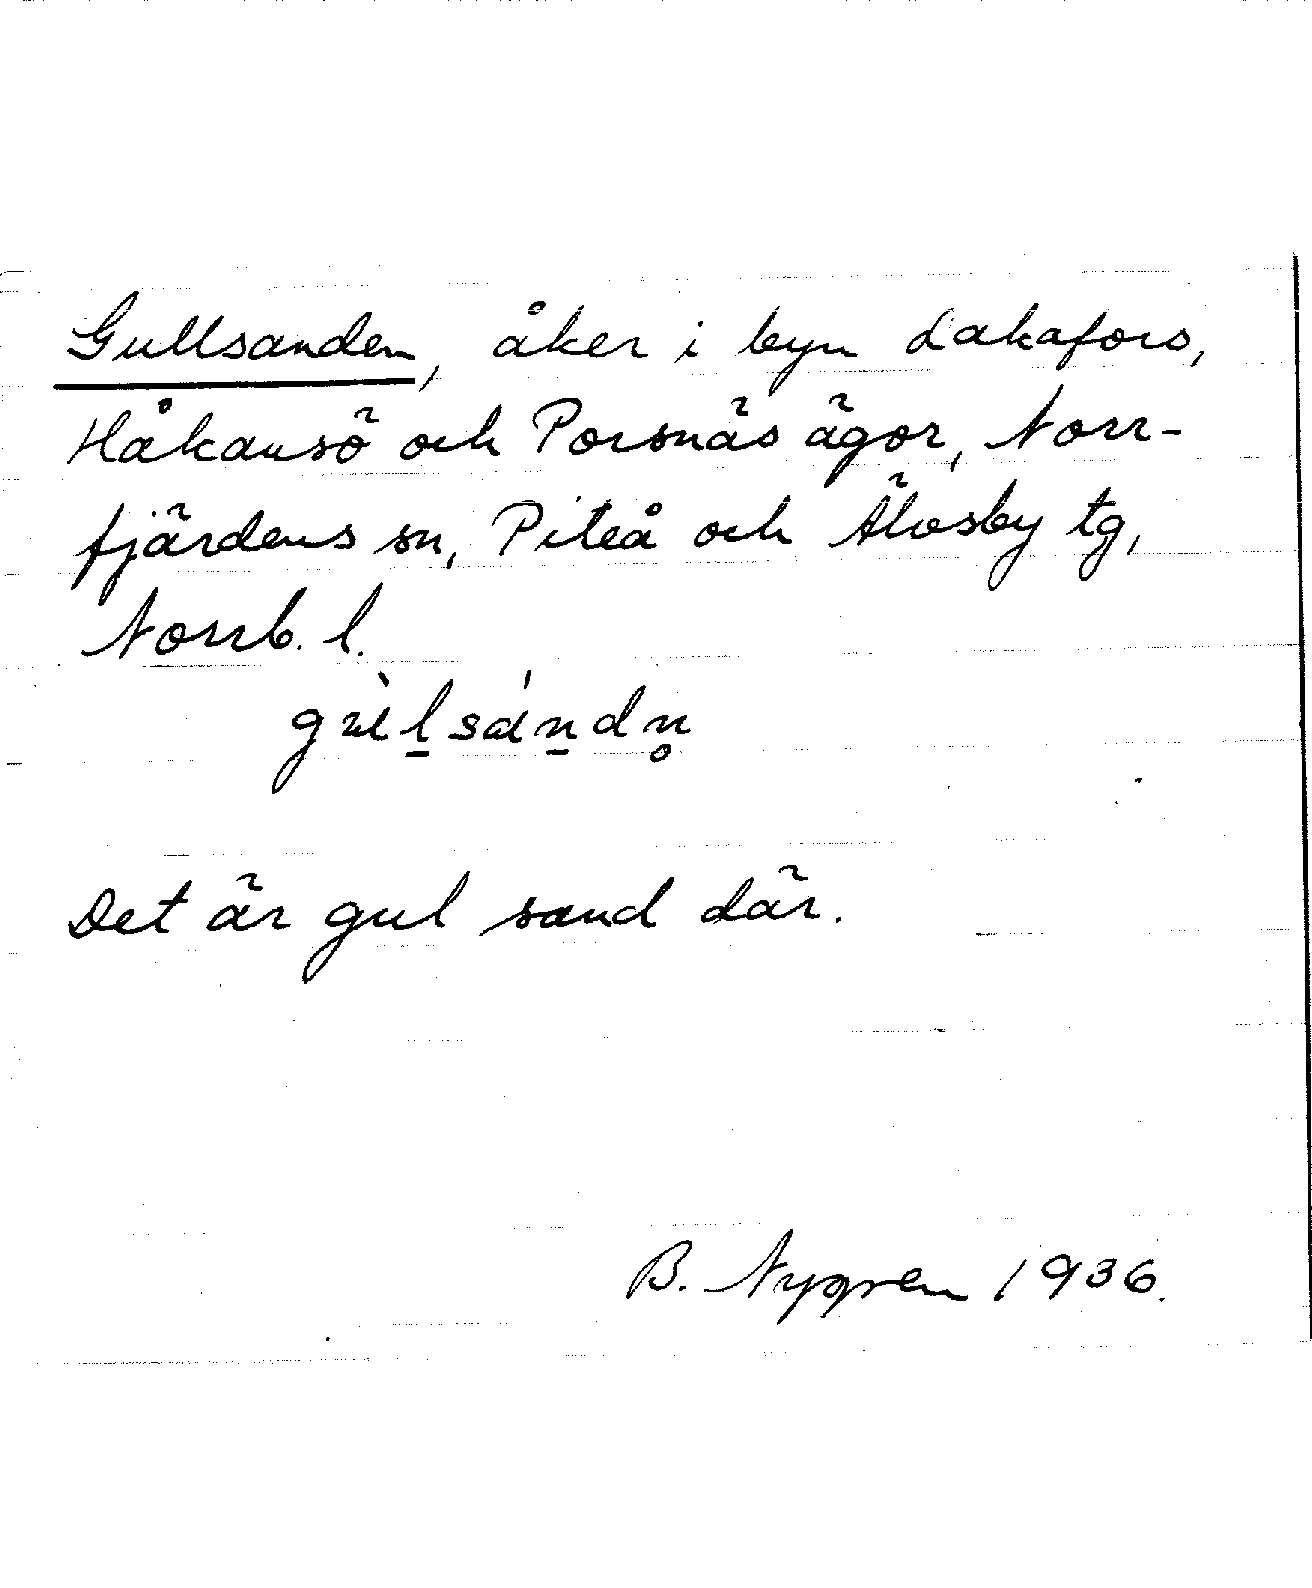 Gullsanden, åker i byn Lakafors,
Håkansö och Porsnäs ägor, Norr-
fjärdens sn, Piteå och Älvsby tg,
Norrb. l.
gùl̠sán̠dn̥
Det är gul sand där.
B. Nygren 1936.